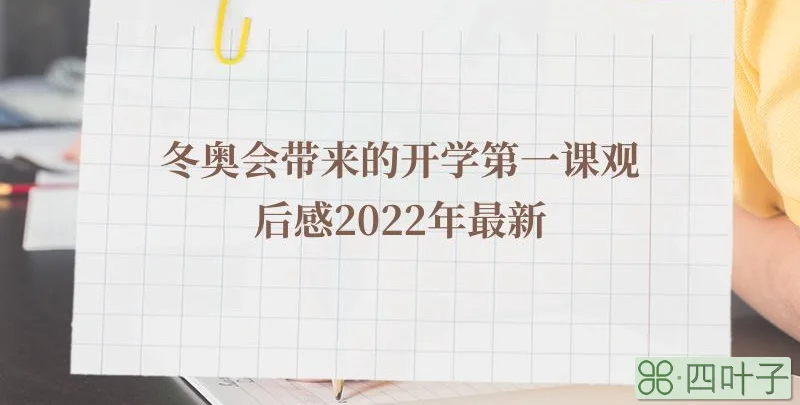 冬奥会带来的开学第一课观
后感2022年最新
四叶子